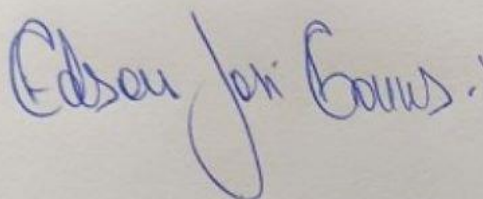 Edson José Gomes.